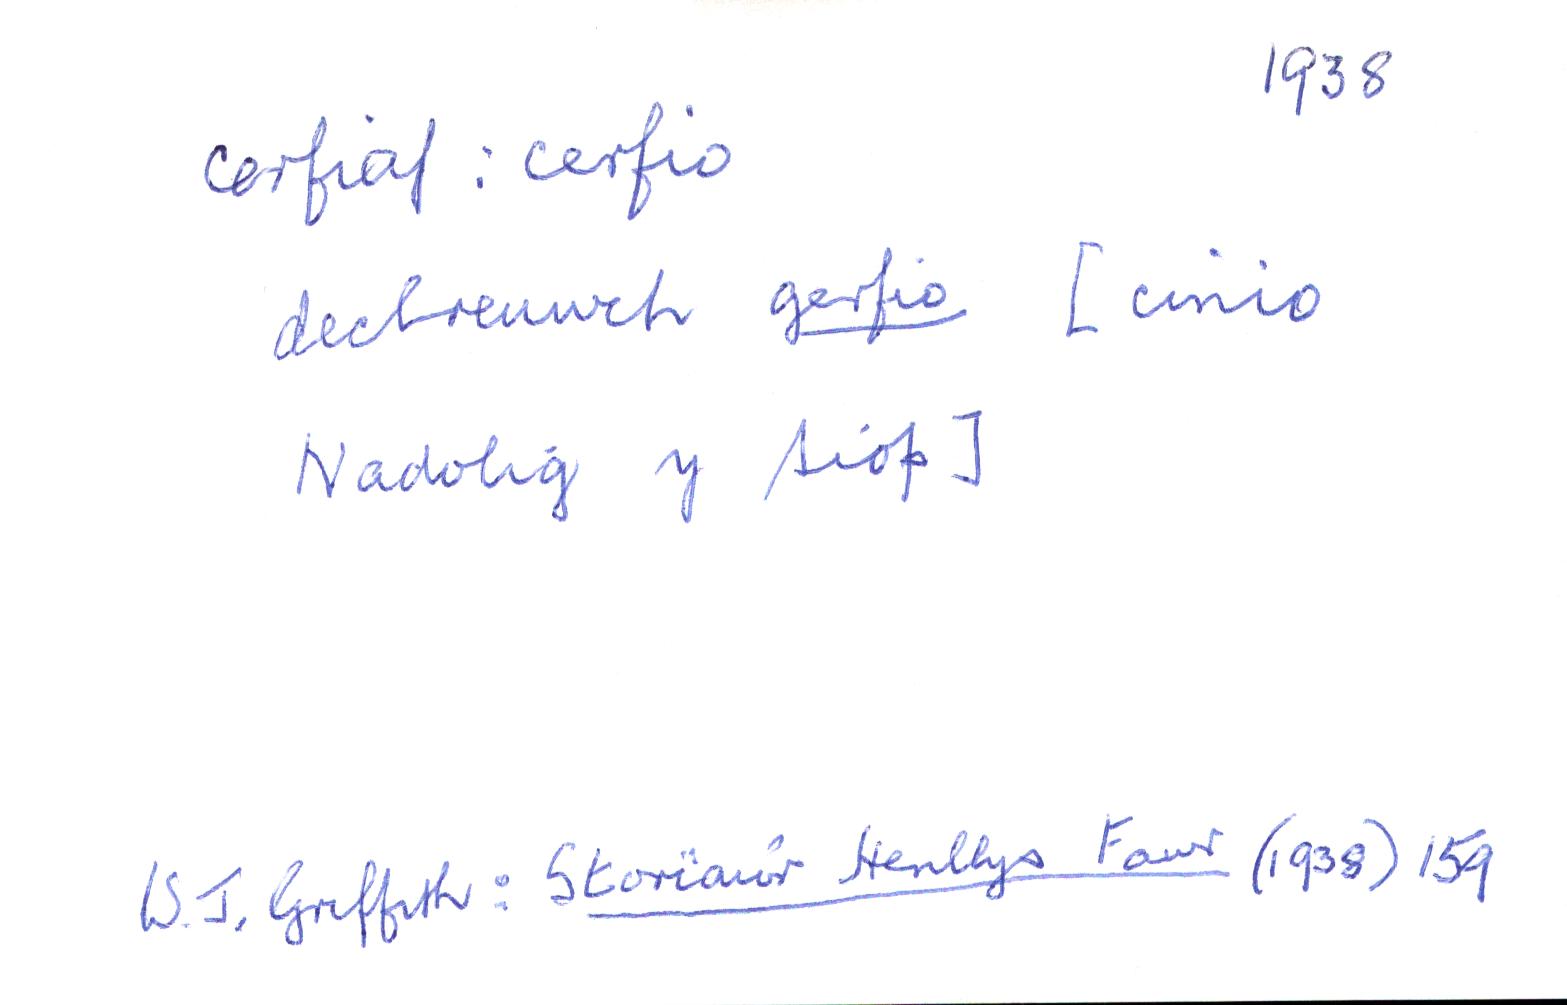 1938
cerfiaf : cerfio
dechreuwch gerfio [ cinio
Nadolig y siop ]
W. J. Griffith : Storïau'r Henllys Fawr (1938) 159